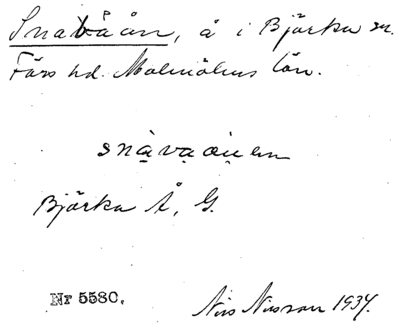 Snavåån, å i Bjärka sn.
Färs hd. Malmöhus län.
Bjärka Å, G.
Nr 5580.
Nils Nilsson 1937.